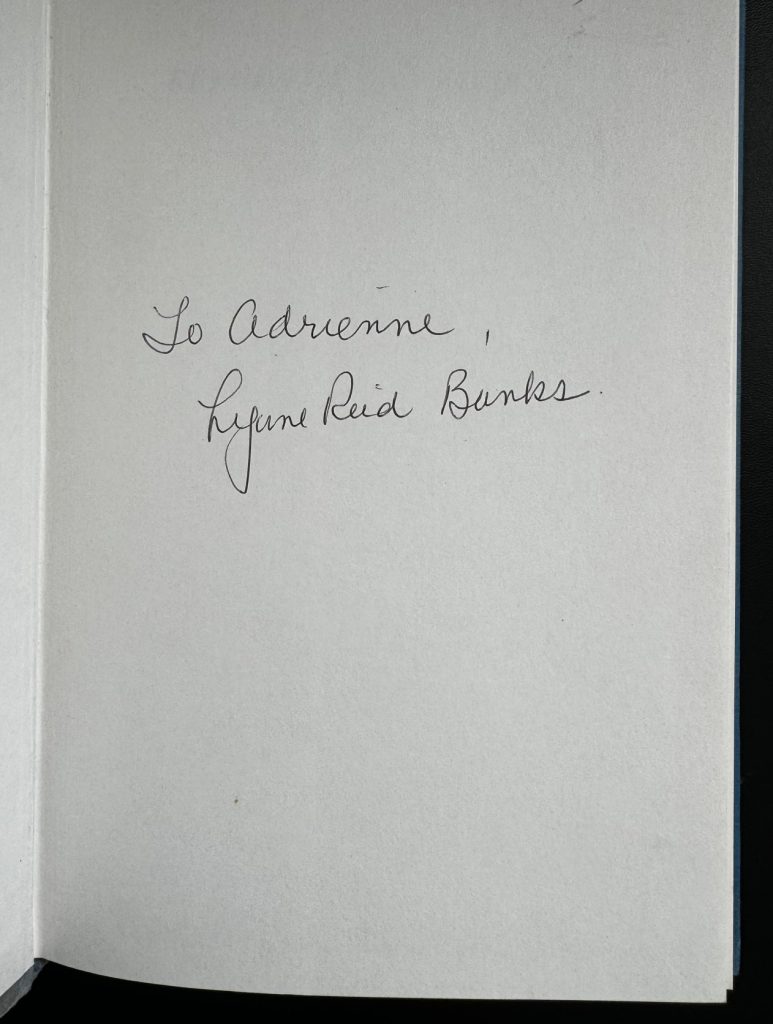 To Adrienne,
Lynne Reid Banks.